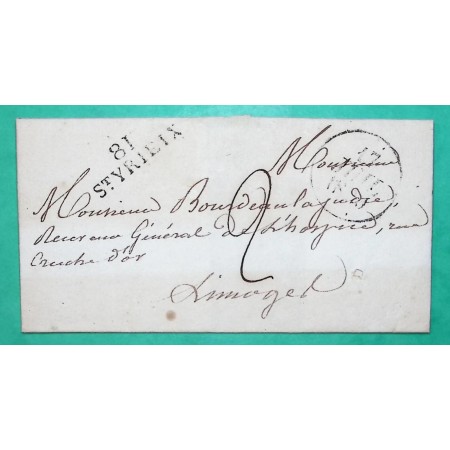 81
ST YRIEIX
Monsieur
Monsieur Bourdeau
Général de l'hospice, rue
Cruche d'or
2
Limoges